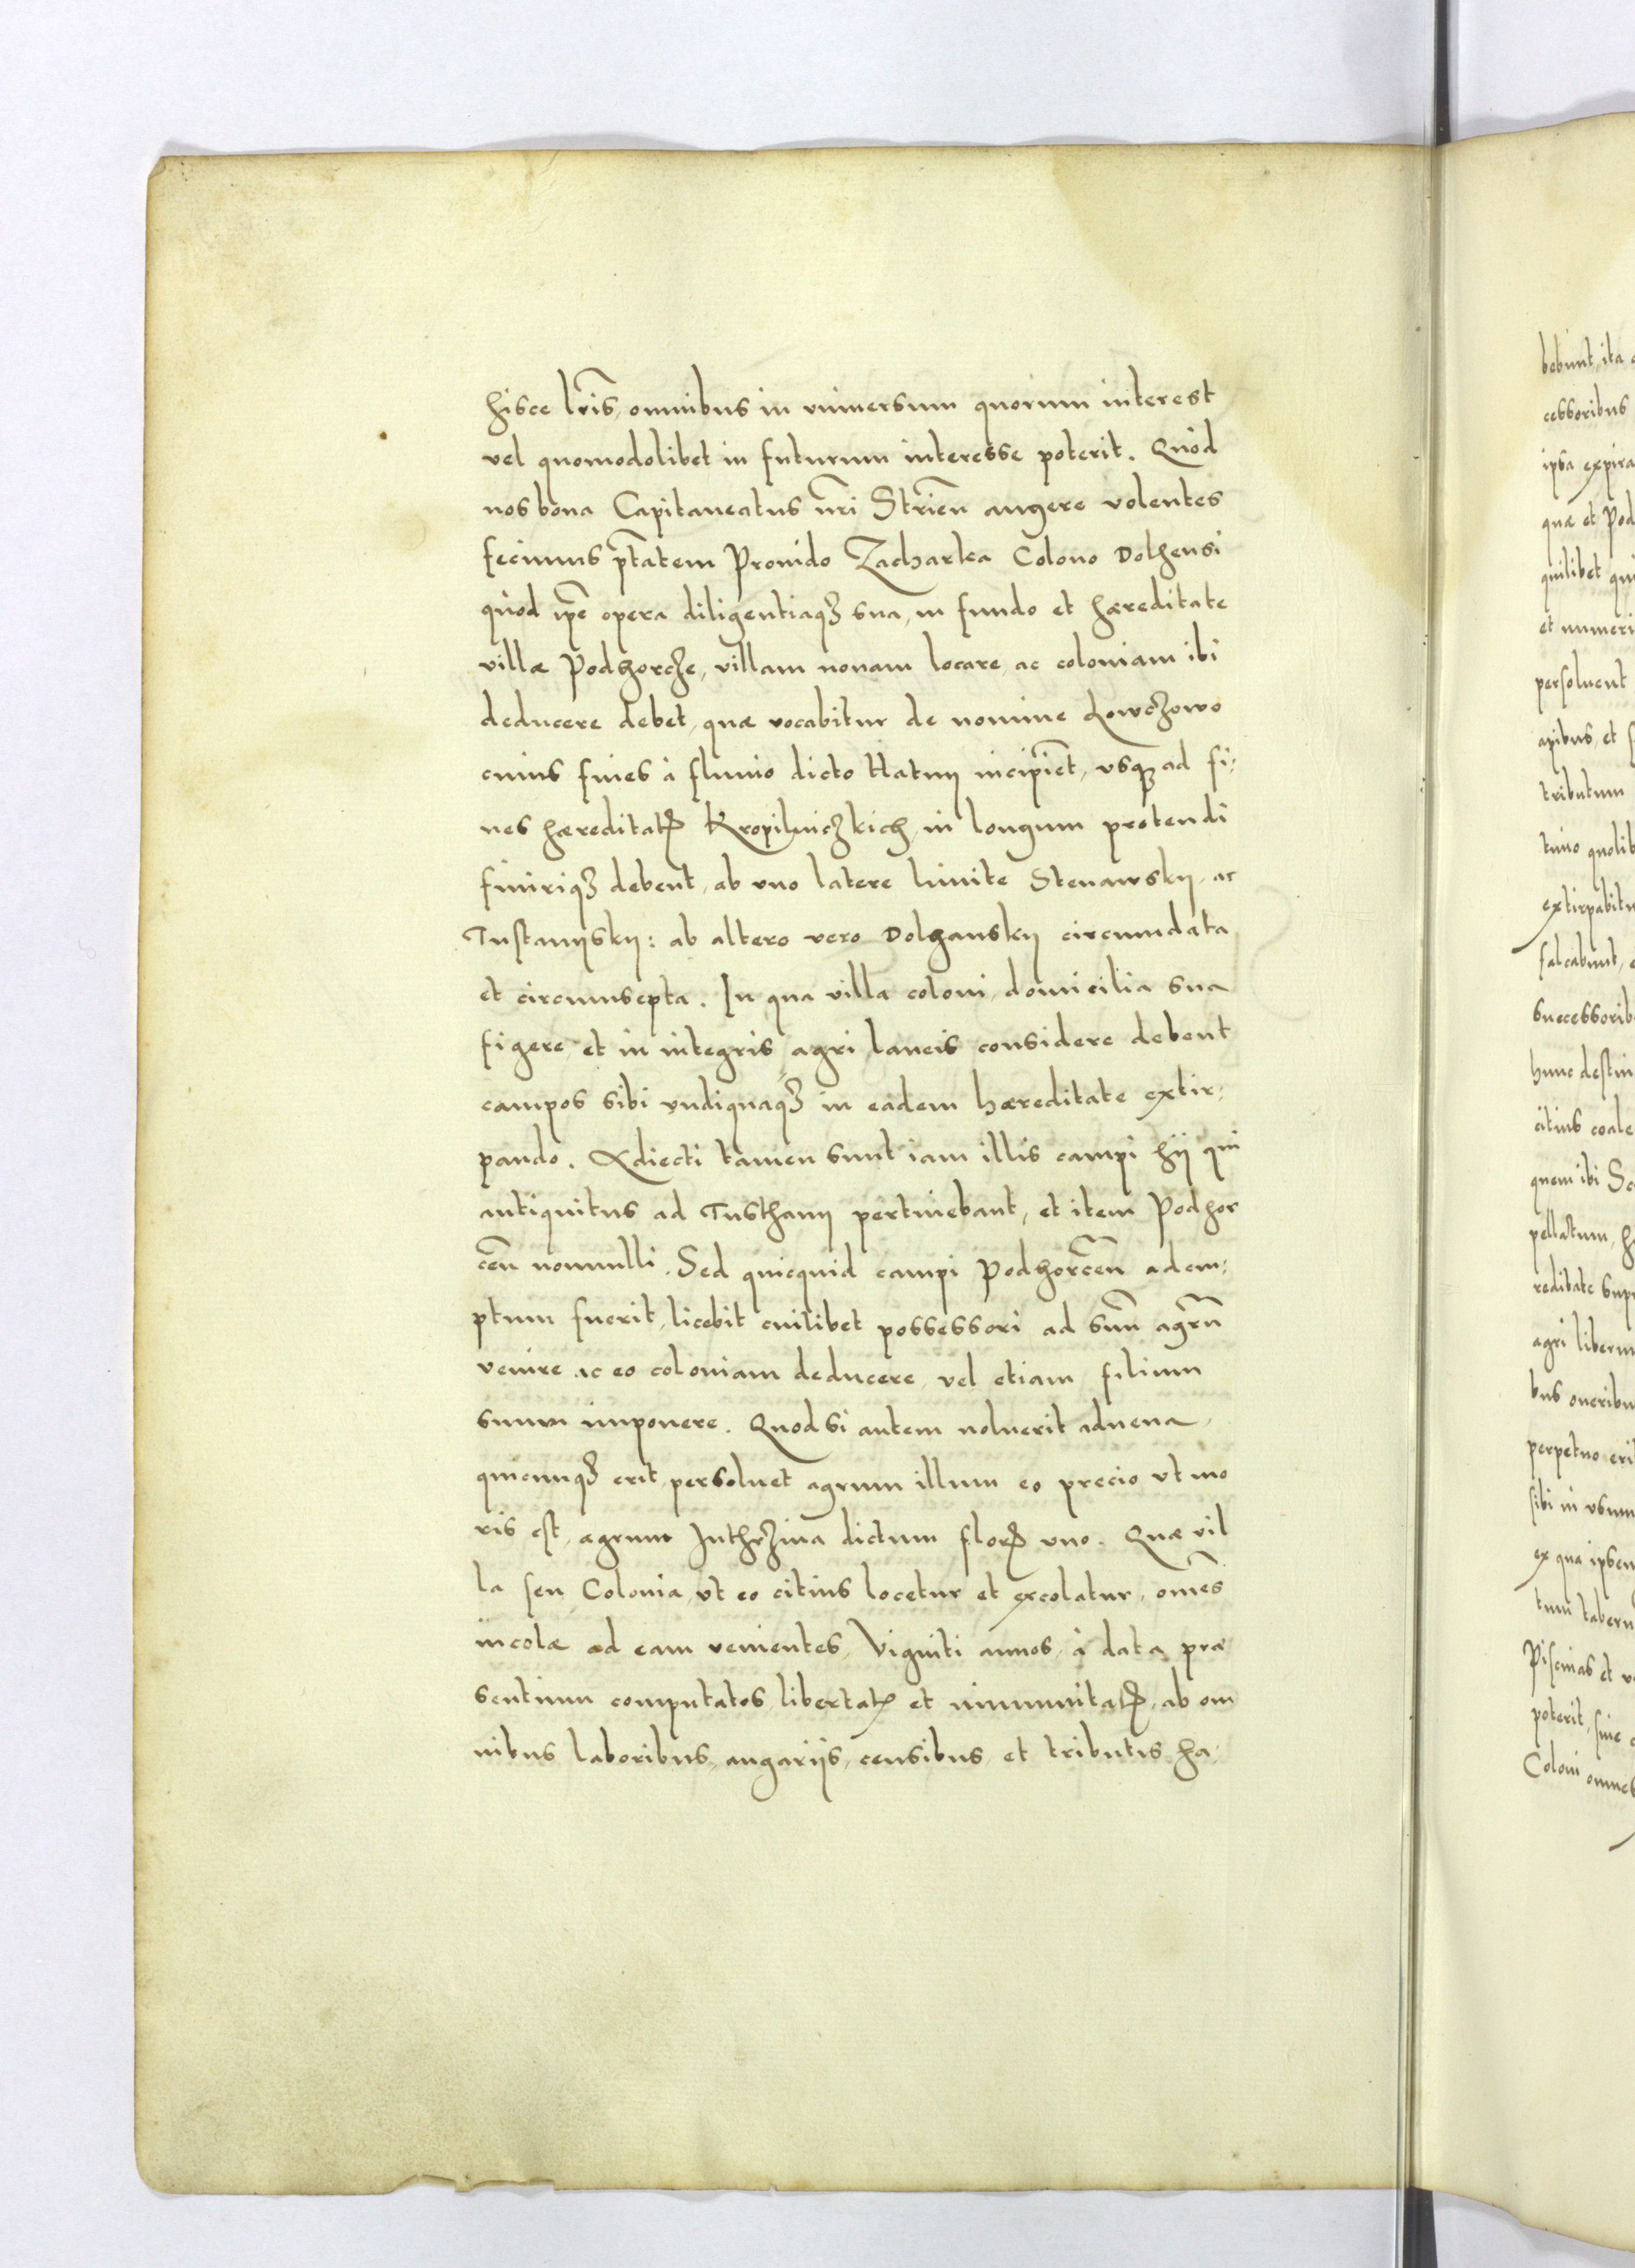 hisce lr̃is, omnibus in vniuersum quorum interest
vel quomodolibet in futurum interesse poterit. Quòd
nos bona Capitaneatus nr̃i Strien̄ augere volentes
fecimus ptãtem Prouido Zacharka Colono Dolhensi
quòd ip̃e opera diligentiaqꝫ sua, in fundo et hæreditate
villæ Podhorcze, villam nouam locare, ac coloniam ibi
deducere debet, quæ vocabitur de nomine Lowczowo
cuius fines à fluuio dicto Hatny incipiẽt, vsqꝫ ad fi:
nes hæreditatꝭ Kropilniczkich, in longum protendi
finiriqꝫ debent, ab vno latere limite Stenawsky, ac
Tustanysky: ab altero vero Dolhansky circumdata
et circumsepta. In qua villa coloni, domicilia sua
figere, et in integris agri laneis considere debent
campos sibi vndiquaqꝫ in eadem hæreditate extir:
pando. Adiecti tamen sunt iam illis campi hij qui
antiquitus ad Tusthany pertinebant, et item Podhor
cẽn nonnulli. Sed quicquid campi Podhorcẽn adem:
ptum fuerit, licebit cuilibet possessori ad suũ agrũ
venire ac eo coloniam deducere, vel etiam filium
suum imponere. Quod si autem noluerit aduena,
quicunqꝫ erit, persoluet agrum illum eo precio vt mo
ris est, agrum Juthrzina dictum florꝭ vno. Quæ vil
la seu Colonia, vt eo citius locetur et excolatur, om̃es
incolæ ad eam venientes, Viginti annos, à data præ
sentium computatos, libertatꝭ et immunitatꝭ, ab om
nibus laboribus, angarijs, censibus, et tributis ha:
bebunt, ita
cessoribus
ipsa expira
quæ et Pod
quilibet qui
et numeri
persoluent
apibus, et
tributum
tuno quolib
extirpabitu
falcabunt,
successorib
hunc destin
citius coale
quem ibi
pellatum,
reditate sup
agri liberu
bus oneribu
perpetuo eri
sibi in vsum
ex qua ipsem
tum tabern
Piscinas et
poterit, siue
Coloni omnes